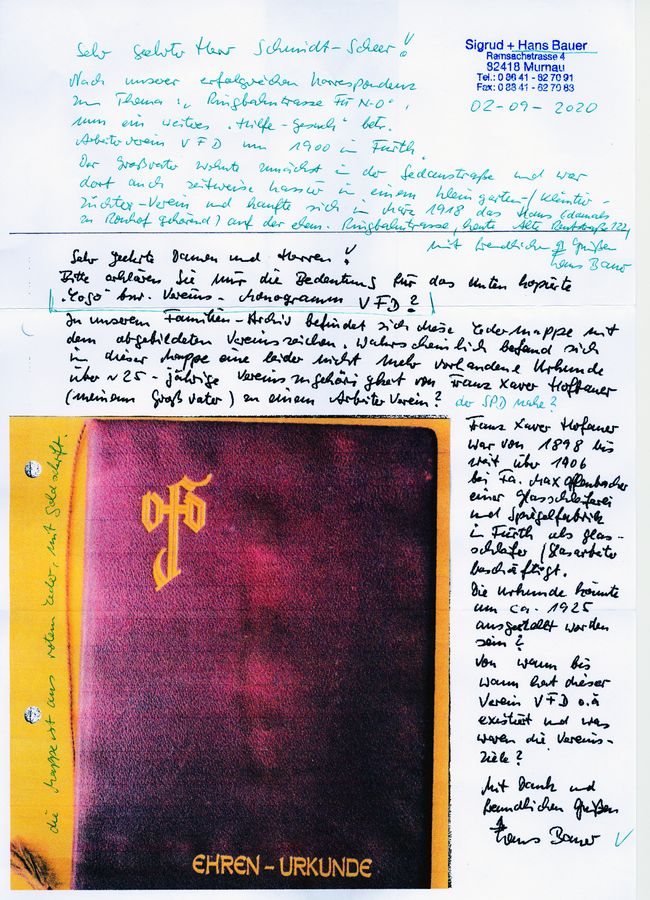 Sehr geehrter Herr Schmidt-Scheer!
Sigrud + Hans Bauer
Ramsachstrasse 4
82418 Murnau
Tel.: 0 88 41 - 62 70 91
Fax: 0 88 41 - 62 79 83
02-09-2020
Nach unserer erfolgreichen Korrespondenz
zum Thema: „Ringbahntrasse Fü N-O",
nun ein weiteres „Hilfe-Gesuch" betr.
Arbeiterverein VFD um 1900 in Fürth.
Der Großvater wohnte zunächst in der Sedanstraße und war
dort auch zeitweise Kassier in einem Kleingarten-/Kleintier-
züchter-Verein und kaufte sich in März 1918 das Haus (damals
zu Ronhof gehörend) auf der ehem. Ringbahntrasse, heute Alte Reutstraße 122,
mit freundlichen Grüßen
Hans Bauer
Sehr geehrte Damen und Herren!
Bitte erklären Sie mir die Bedeutung für das unten kopierte
„Logo" bzw. Vereins-Monogramm VFD?
In unserem Familien-Archiv befindet sich diese Ledermappe mit
dem abgebildeten Vereinszeichen. Wahrscheinlich befand sich
in dieser Mappe eine leider nicht mehr vorhandene Urkunde
über ~25-jährige Vereinszugehörigkeit von Franz Xaver Hofbauer
(meinem Großvater) zu einem Arbeiterverein? der SPD nahe?
die Mappe ist aus rotem Leder, mit Goldschrift.
vfd
EHREN-URKUNDE
Franz Xaver
war von 1898 bis
weit über 1906
bei Fa. Max Offenbacher
einer Glasschleiferei
und Spiegelfabrik
in Fürth als Glas-
schleifer/Glasarbeiter
beschäftigt.
Die Urkunde könnte
um ca. 1925
ausgestellt worden
sein?
Von wann bis
wann hat dieser
Verein VFD o.ä
existiert und was
waren die Vereins-
ziele?
Mit Dank und
freundlichen Grüßen
Hans Bauer